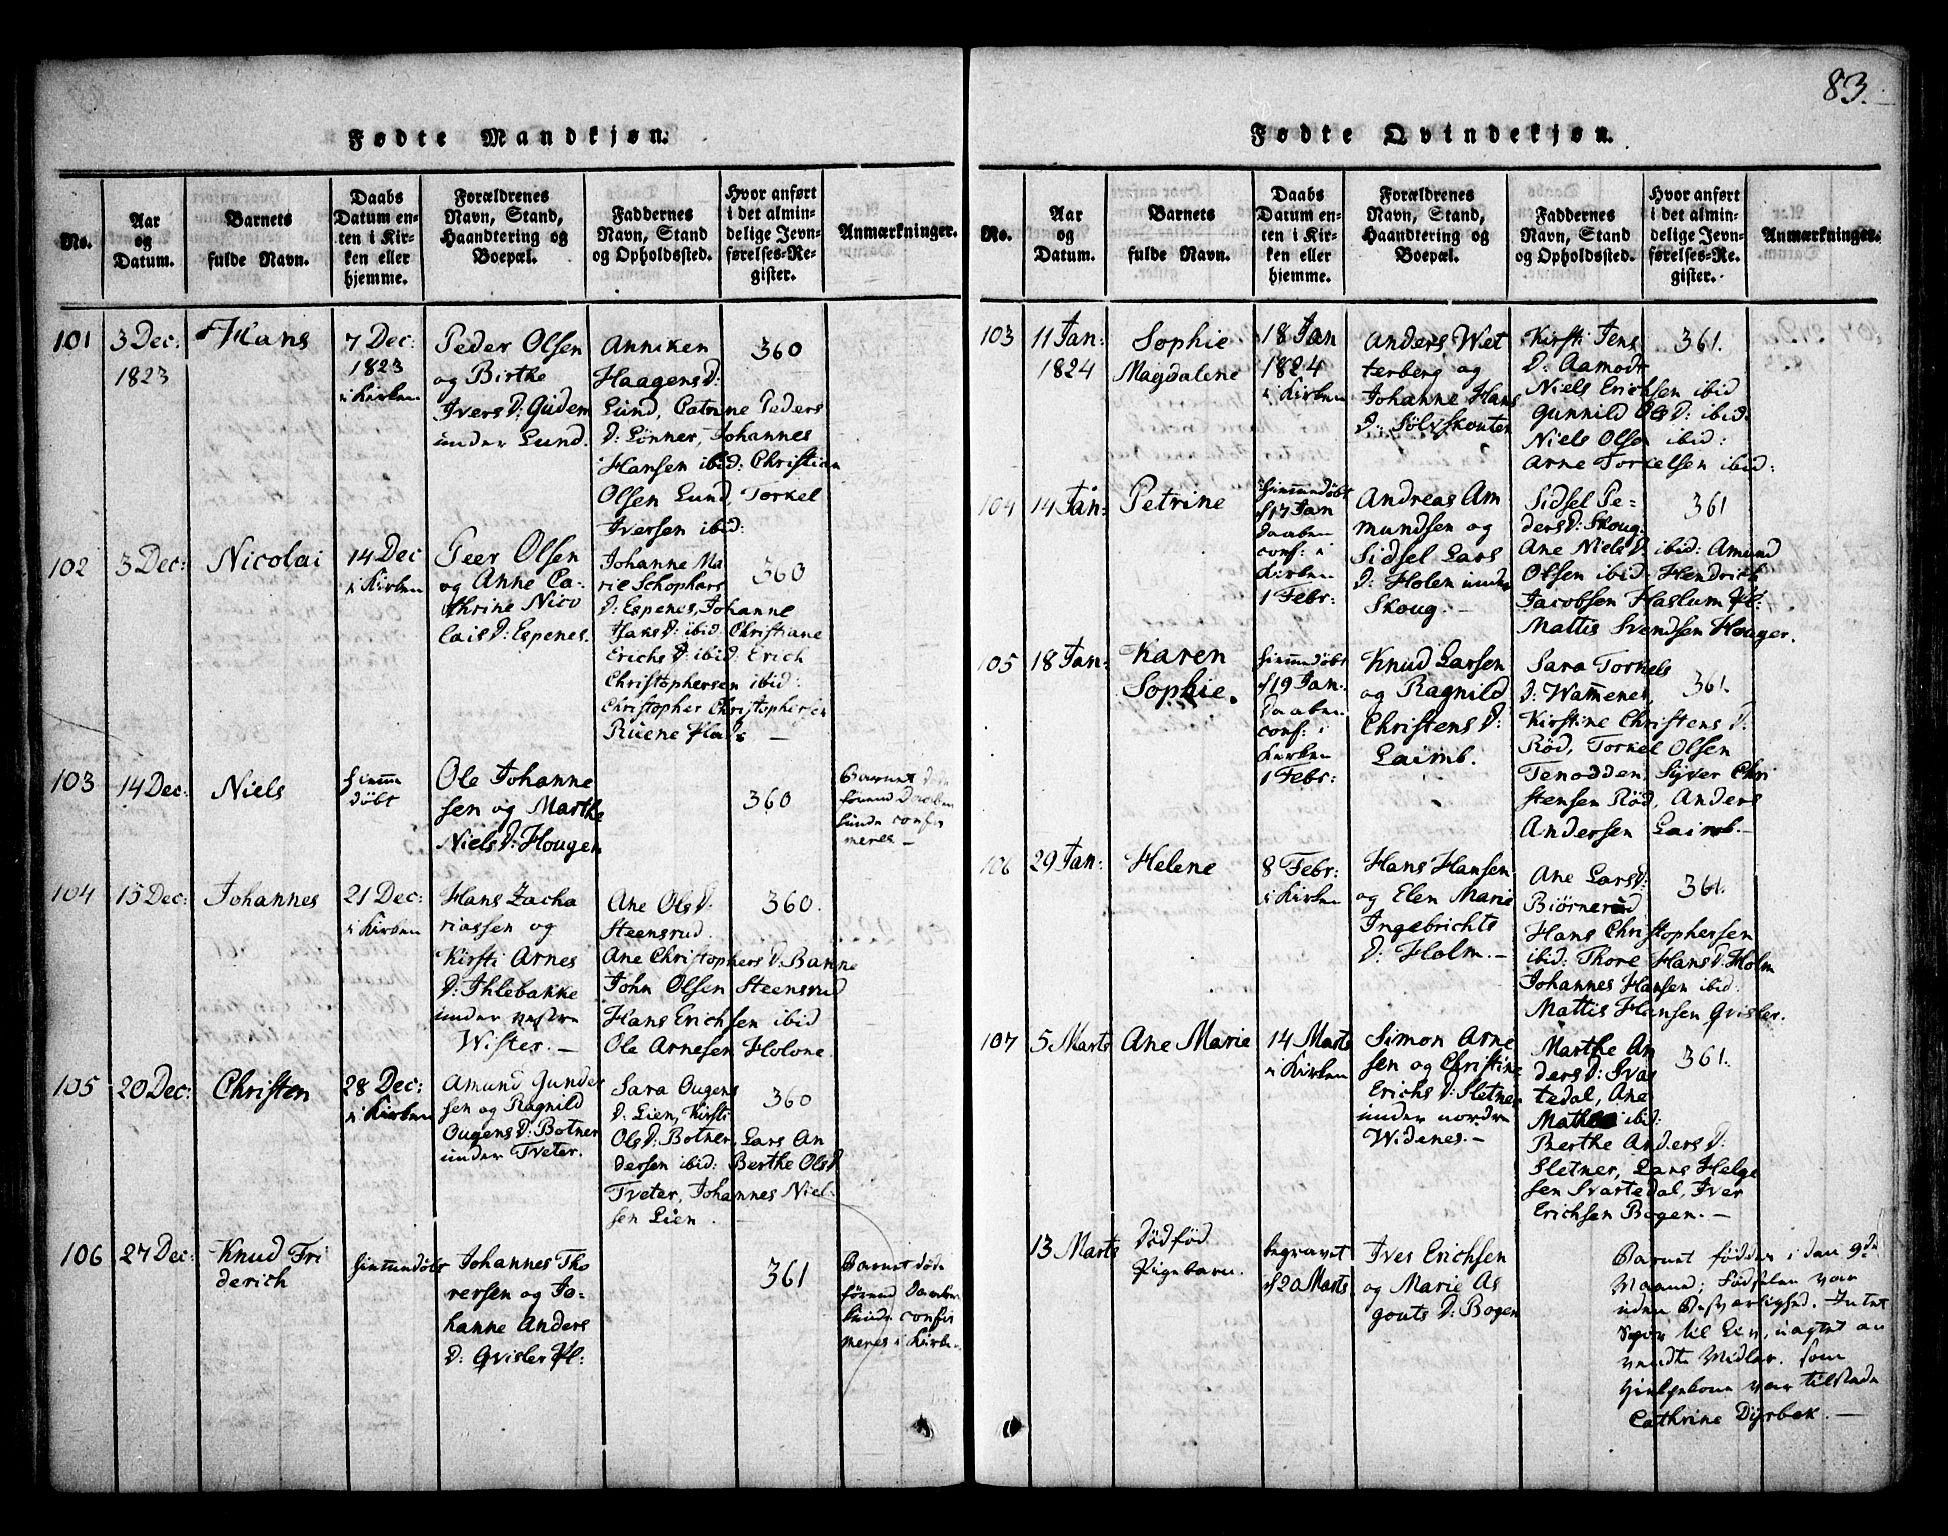 83.
Fødte Mandkjøn.
No.
Aar
og
Datum.
Barnets
fulde Navn.
Daabs
Datum en-
ten i Kir-
ken eller
hjemme.
Forældrenes
Navn, Stand,
Haandtering og
Boepæl.
Faddernes
Navn, Stand
og Opholdssted.
Hvor anført
i det almin-
delige Jevn-
førelses-Re-
gister.
Anmærkninger.
101
3 Dec:
1823
Hans
7 Dec:
1823
i Kirken
Peder Olsen
og Birthe
Ivers D: Gudem
under Lund.
Anniken
Haagens D:
Lund, Catrine Peders
D: Lønner, Johannes
Hansen ibid: Christian
Olsen Lund, Torkel
Iversen ibid:
360
102
3 Dec:
Nicolai
14 Dec
i Kirken
Peer Olsen
og Anne Ca-
thrine Nico
lais D: Espenes.
Johanne Ma
rie Schophars
D: Espenes, Johanne
Hans D: ibid: Christiane
Erichs D: ibid: Erich
Christophersen ibid:
Christopher Christophersen
Ruene Hals —
360
103
14 Dec:
Niels
hiemme
døbt
Ole Johanne
sen og Marthe
Niels D: Hougen
360
Barnet døde
førend Daaben
kunde confir
meres —
104
15 Dec:
Johannes
21 Dec:
i Kirken
Hans Zacha
riassen og
Kirsti Arnes
D: Ihlebakke
under vestre
Wister. —
Ane Ols D:
Steensrud.
Ane Christophers D: Banne
John Olsen Steensrud
Hans Erichsen ibid
Ole Arnesen Holone.
360.
105
20 Dec:
Christen
28 Dec:
i Kirken
Amund Gunder
sen og Ragnild
Ougens D: Botner
under Tveter.
Sara Ougens
D: Lien, Kirsti
Ols D: Botner, Lars An
dersen ibid: Berthe Ols D
Tveter, Johannes Niel-
sen Lien.
360
106
27 Dec:
Knud Fri
derich
hiemmedøbt
Johannes Tho
rersen og Jo-
hanne Anders
D: Qvisler Pl:
361
Barnet døde
førend Daaben
kunde confir
meres i Kirken
Fødte Qvindekjøn.
No.
Aar
og
Datum.
Barnets
fulde Navn.
Daabs
Datum en-
ten i Kir-
ken eller
hjemme.
Forældrenes
Navn, Stand,
Haandtering og
Boepæl.
Faddernes
Navn, Stand
og Opholdssted.
Hvor anført
i det almin-
delige Jevn-
førelses-Re-
gister.
Anmærkninger.
103
11 Jan:
1824
Sophie
Magdalene
18 Jan
1824
i Kirken
Anders Wet
terberg og
Johanne Hans
D: Sølvskouten
Kirsti Jens
D: Aamodt
Niels Erichsen ibid
Gunnild Ols D: ibid:
Niels Olsen ibid:
Arne Torkelsen ibid:
361.
104
14 Jan:
Petrine
hiemmedøbt
d 17 Jan
Daaben
conf: i
Kirken
1 Febr:
Andreas Am
mundsen og
Sidsel Lars
D: Holen under
Skoug. —
Sidsel Pe-
ders D: Skoug.
Ane Niels D: ibid: Amund
Olsen ibid: Hendrich
Jacobsen Haslum Pl:
Mattis Svendsen Houger.
361
105
18 Jan:
Karen
Sophie.
hiemmedøbt
d 19 Jan.
Daaben
conf: i
Kirken
1 Febr:
Knud Larsen
og Ragnild
Christens D:
Laimb.
Sara Torkels
D: Wamenes,
Kirstine Christens D:
Rød, Torkel Olsen
Tenodden, Syver Chri
stensen Rød, Anders
Andersen Laimb. —
361.
106
29 Jan:
Helene
8 Febr:
i Kirken
Hans Hansen
og Elen Marie
Ingebrichts
D: Holm. —
Ane Lars D:
Biørnerud
Hans Christophersen
ibid: Thore Hans D: Holm
Johannes Hansen ibid:
Mattis Hansen Qvisler.
361.
107
5 Marts
Ane Marie
14 Marts
i Kirken
Simon Arne
sen og Christine
Erichs D: Sletner
under nordre
Widenes. —
Marthe An
ders D: Svar
tedal, Ane
ibid:
Berthe Anders D:
Sletner, Lars Helge
sen Svartedal, Iver
Erichsen Bogen. —
361.
13 Marts
Dødfød
Pigebarn.
begravet
d 20 Marts
Iver Erichsen
og Marie As
gouts D: Bogen
Barnet fødden i den 9de
Maaned; Fødselen var
uden Besværlighed. Intet
Spor til Liv, uagtet an
vendte Midler. Som
Hielpekone var tilstede
Cathrine Dyrbek. —